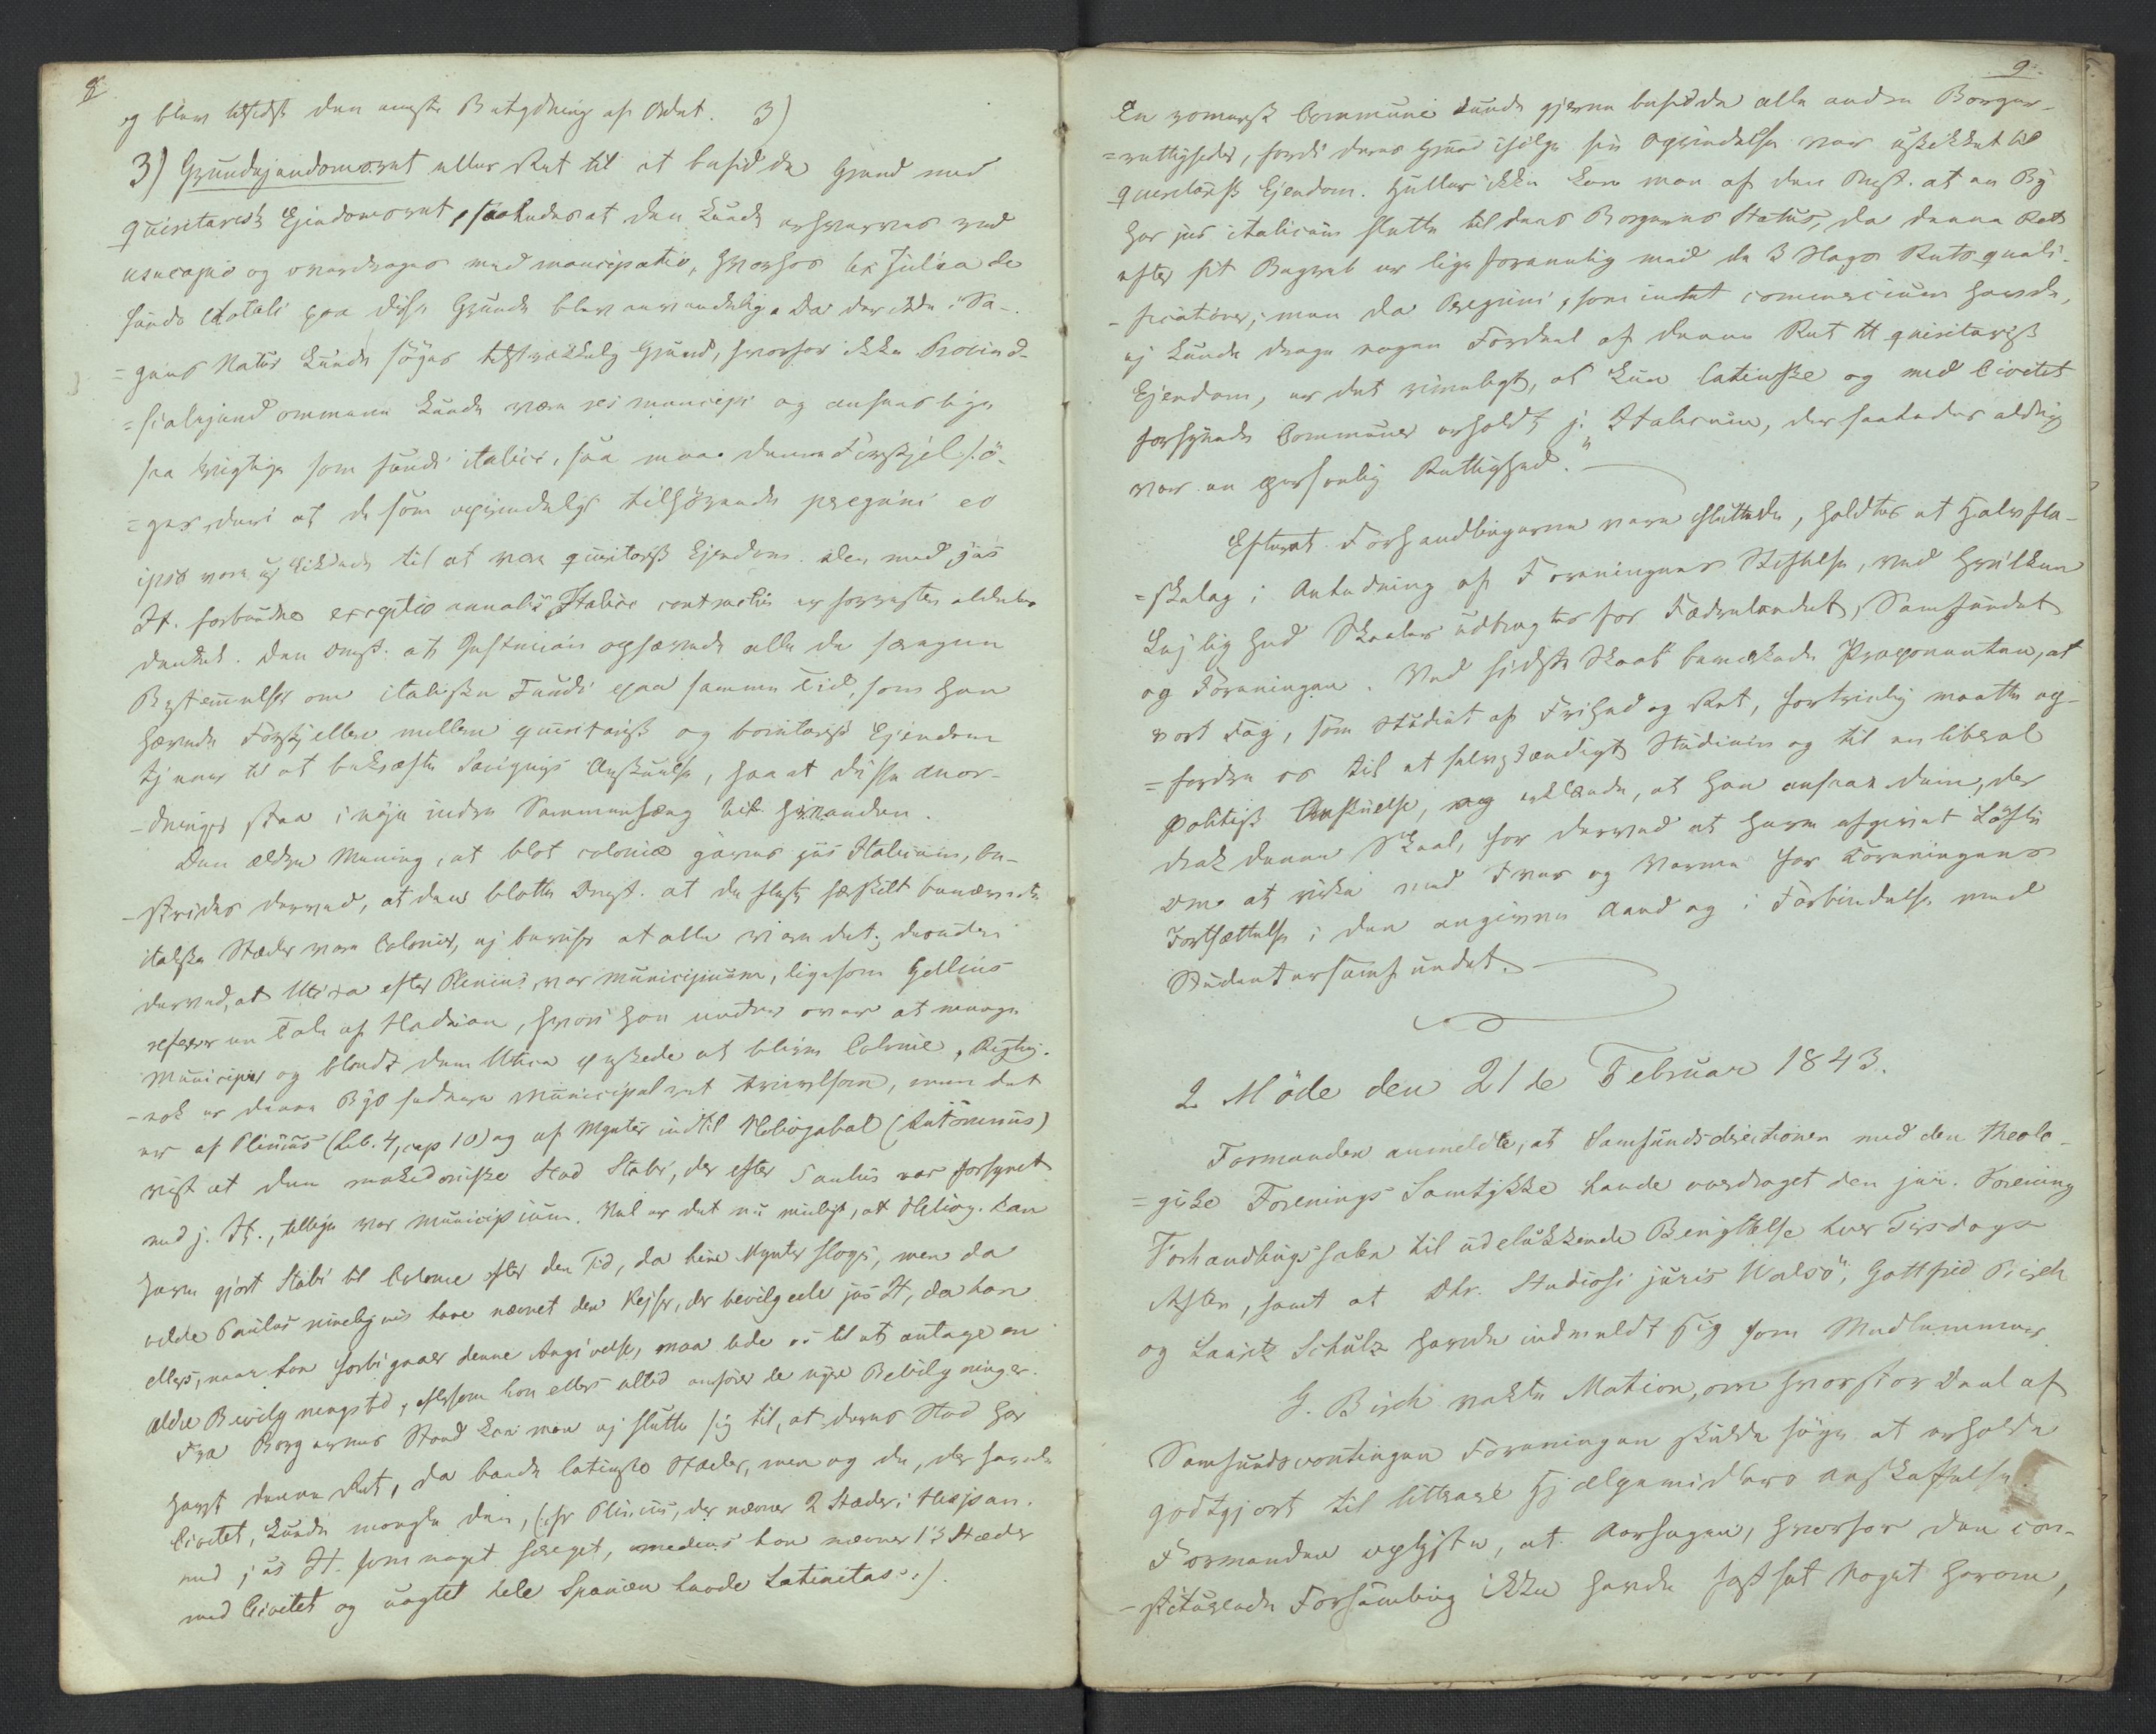 8
og blev tilsidst den eneste Betydning af Ordet. 3)
3) Grundejendomsret eller Ret til at besidde Grund med
quiritarisk Ejendomsret, saaledes at den kunde erhverves ved
usucapio og overdrages med mancipatio, hvorhos lex Julia de
fundo dotali paa disse Grunde blev anvendelig. Da der ikke i Sa-
=gens Natur kunde søges tilstrækkelig Grund, hvorfor ikke Provind-
=sialejendommene kunde være res mancipi og ansees lige
saa vigtige som fundi italici, saa maa denne Forskjel sø-
=ges deri at de som oprindeligt tilhørende peregrini eo
ipso vare uskikkede til at være quiritarisk Ejendom. Den med jus
It. forbundne exceptio annalis Italici contractus er forresten aldeles
dunkel. Den Omst. at Justinian ophævede alle de særegne
Bestemmelser om italiske Fundi paa samme Tid, som han
hævede Forskjellen mellem quiritarisk og bonitarisk Ejendom
tjener til at bekræfte Savignys Anskuelse, saa at disse Anor-
-dninger staa i nøje indre Sammenhæng til hinanden.
Den ældre Mening, at blot coloniæ gaves jus Italicum, be-
-strides derved, at den blotte Omst. at de fleste særskilt benævnte
italske Stæder vare Colonier, ej beviser at alle vare det; desuden
derved, at Utica efter Plinius, var municipium, ligesom Gellius
referer en Tale af Hadrian, hvori han undrer over at mange
Municipier og blandt dem Utica ønskede at blive Colonie. Rigtig-
-nok er denne Byes sednere Municipalret tvivlsom, men det
er af Plinius (Lib. 4, cap 10) og af Mynter indtil Heliogabal (Antoninus)
vist at den makedoniske Stad Stobi, der efter Paulus var forsynet
med j. It., tillige var municipium. Vel er det nu muligt, at Heliog. kan
have gjort Stobi til Colonie efter den Tid, da hine Mynter sloges, men da
vilde Paulus rimeligvis have nævnet den Kejser, der bevilgede jus It, da han
ellers, naar han forbigaaer denne Angivelse, maa lede os til at antage en
ældre Bevilgningstid, eftersom han ellers altid anfører de nyere Bevilgninger.
Fra Borgernes Stand kan man ej slutte sig til, at deres Stad har
havt denne Ret, da baade latinske Stæder, men og de, der havde
Civitet, kunde mangle den, (cfr Plinius, der nævner 2 Stæder i Hispan.
med jus It. som noget særeget, medens han nævner 13 Stæder
med Civitet og uagtet hele Spanien havde Latinitas.).
9.
En romersk Commune kunde gjerne besidde alle andre Borger-
=rettigheder, fordi deres Grund ifølge sin Oprindelse var uskikket til
quiritarisk Ejendom. Heller ikke kan man af den Omst. at en By
har jus italicum slutte til dens Borgeres Status, da denne Ret
efter sit Begreb er lige forenelig med de 3 Slags Retsquali-
-ficationer; men da Peregrini, som intet commercium havde,
ej kunde drage nogen Fordeel af denne Ret til quiritarisk
Ejendom, er det rimeligt, at kun latinske og med Civitet
forsynede Communer erholdt j. Italicum, der saaledes aldrig
var en personlig Rettighed."
Efterat Forhandlingerne vare sluttede, holdtes et Halvfla-
=skelag i Anledning af Foreningens Stiftelse, ved hvilken
Lejlighed Skaaler udbragtes for Fædrelandet, Samfundet
og Foreningen. Ved sidste Skaal bemærkede Proponenten, at
vort Fag, som Studiet af Frihed og Ret, fortrinlig maatte op-
=fordre os til et selvstændigt Studium og til en liberal
politisk Anskuelse, og erklærede, at han ansaae dem, der
drak denne Skaal, for derved at have afgivet Løfte
om at virke med Iver og Varme for Foreningens
Fortsættelse i den angivne Aand og i Forbindelse med
Studentersamfundet.
2 Møde den 21de Februar 1843.
Formanden anmeldte, at Samfundsdirectionen med den theolo-
=giske Forenings Samtykke havde overdraget den jur. Forening
Forhandlingssalen til udelukkende Benyttelse hver Tirsdags
Aften, samt at DHr. Studiosi juris Walsø, Gottfred Birch
og Lauritz Schulz havde indmeldt sig som Medlemmer
G. Birch vakte Motion, om hvorstor Deel af
Samfundscontingen Foreningen skulde søge at erholde
godtgjort til litterære Hjælpemidlers Anskaffelse.
Formanden oplyste, at Aarsagen, hvorfor den con-
-stituerende Forsamling ikke havde fastsat Noget herom,